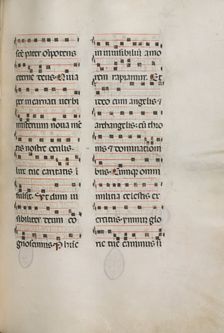 sce pater omnipotens
eterne deus Quia
per incarnati verbi
misterium noua me
tis nostre oculis
lux tue claritatis i
fulsit Ut dum ui
sibiliter deum co
gnoscimus p hunc
in inuisibiliū amo
rem rapiamur Et
ideo cum angelis
archangelis cū thro
nis dominacioni
bus Cumqz omni
militia celestis ex
ercitus ymnum glo
rie tue canimus si